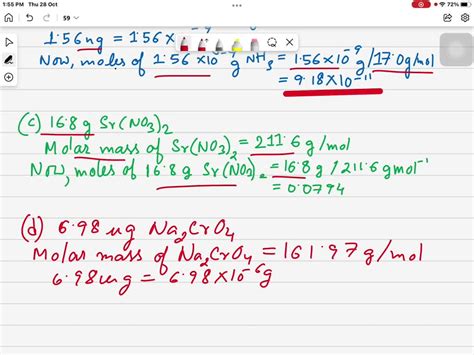 1:55 PM Thu 28 Oct
72%
59
1.56 ng = 1.56 ×
Now, moles of 1.56 ×10⁻⁹ g NH₃ = 1.56×10⁻⁹ g/17.0g/mol
= 9.18×10⁻¹¹
(c) 16.8 g Sr(NO₃)₂
Molar mass of Sr(NO₃)₂ = 211.6 g/mol
Now, moles of 16.8 g Sr(NO₃)₂ = 16.8 g / 211.6 gmol⁻¹
= 0.0794
(d) 6.98 ug Na₂CrO₄
Molar mass of Na₂CrO₄ = 161.97 g/mol
6.98 ug = 6.98×10⁻⁶g